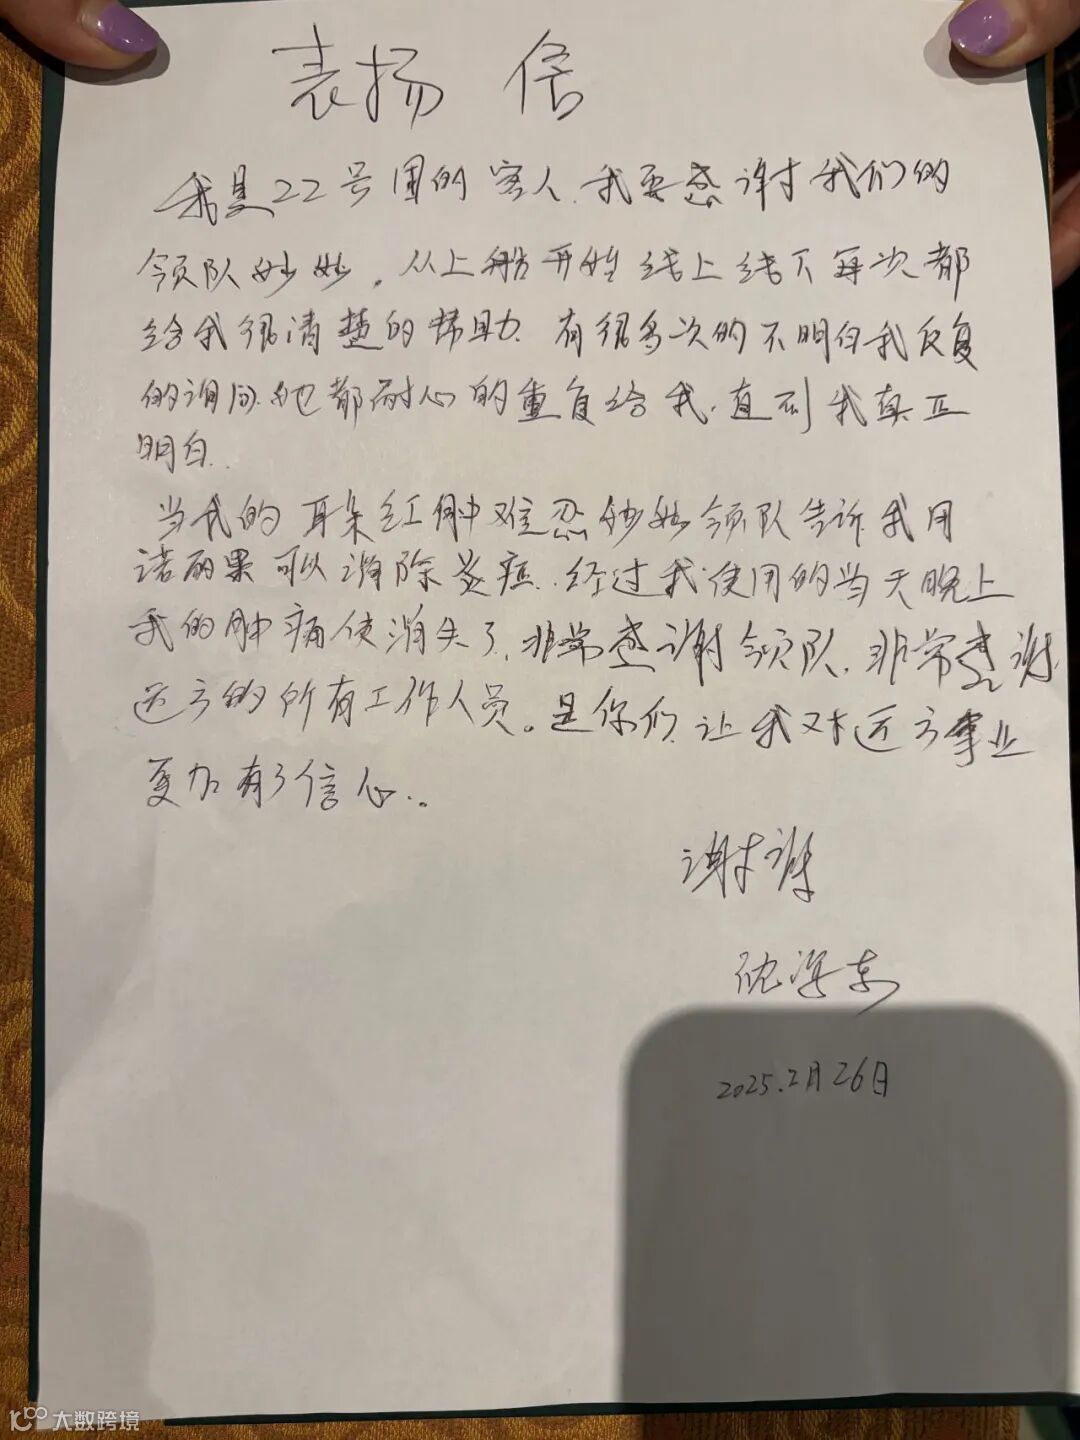 表扬信
我是22号团的客人.我要感谢我们的
领队妙妙。从上船开始线上线下每次都
给我很清楚的帮助.有很多次的不明白我反复
的询问.她都耐心的重复给我.直到我真正
明白.
当我的耳朵红肿难忍妙妙领队告诉我用
诺丽果可以消除炎症.经过我使用的当天晚上
我的肿痛便消失了.非常感谢领队.非常感谢
远方的所有工作人员。是你们让我对远方事业
更加有了信心..
谢谢
沈海东
2025.2月26日
大数跨境